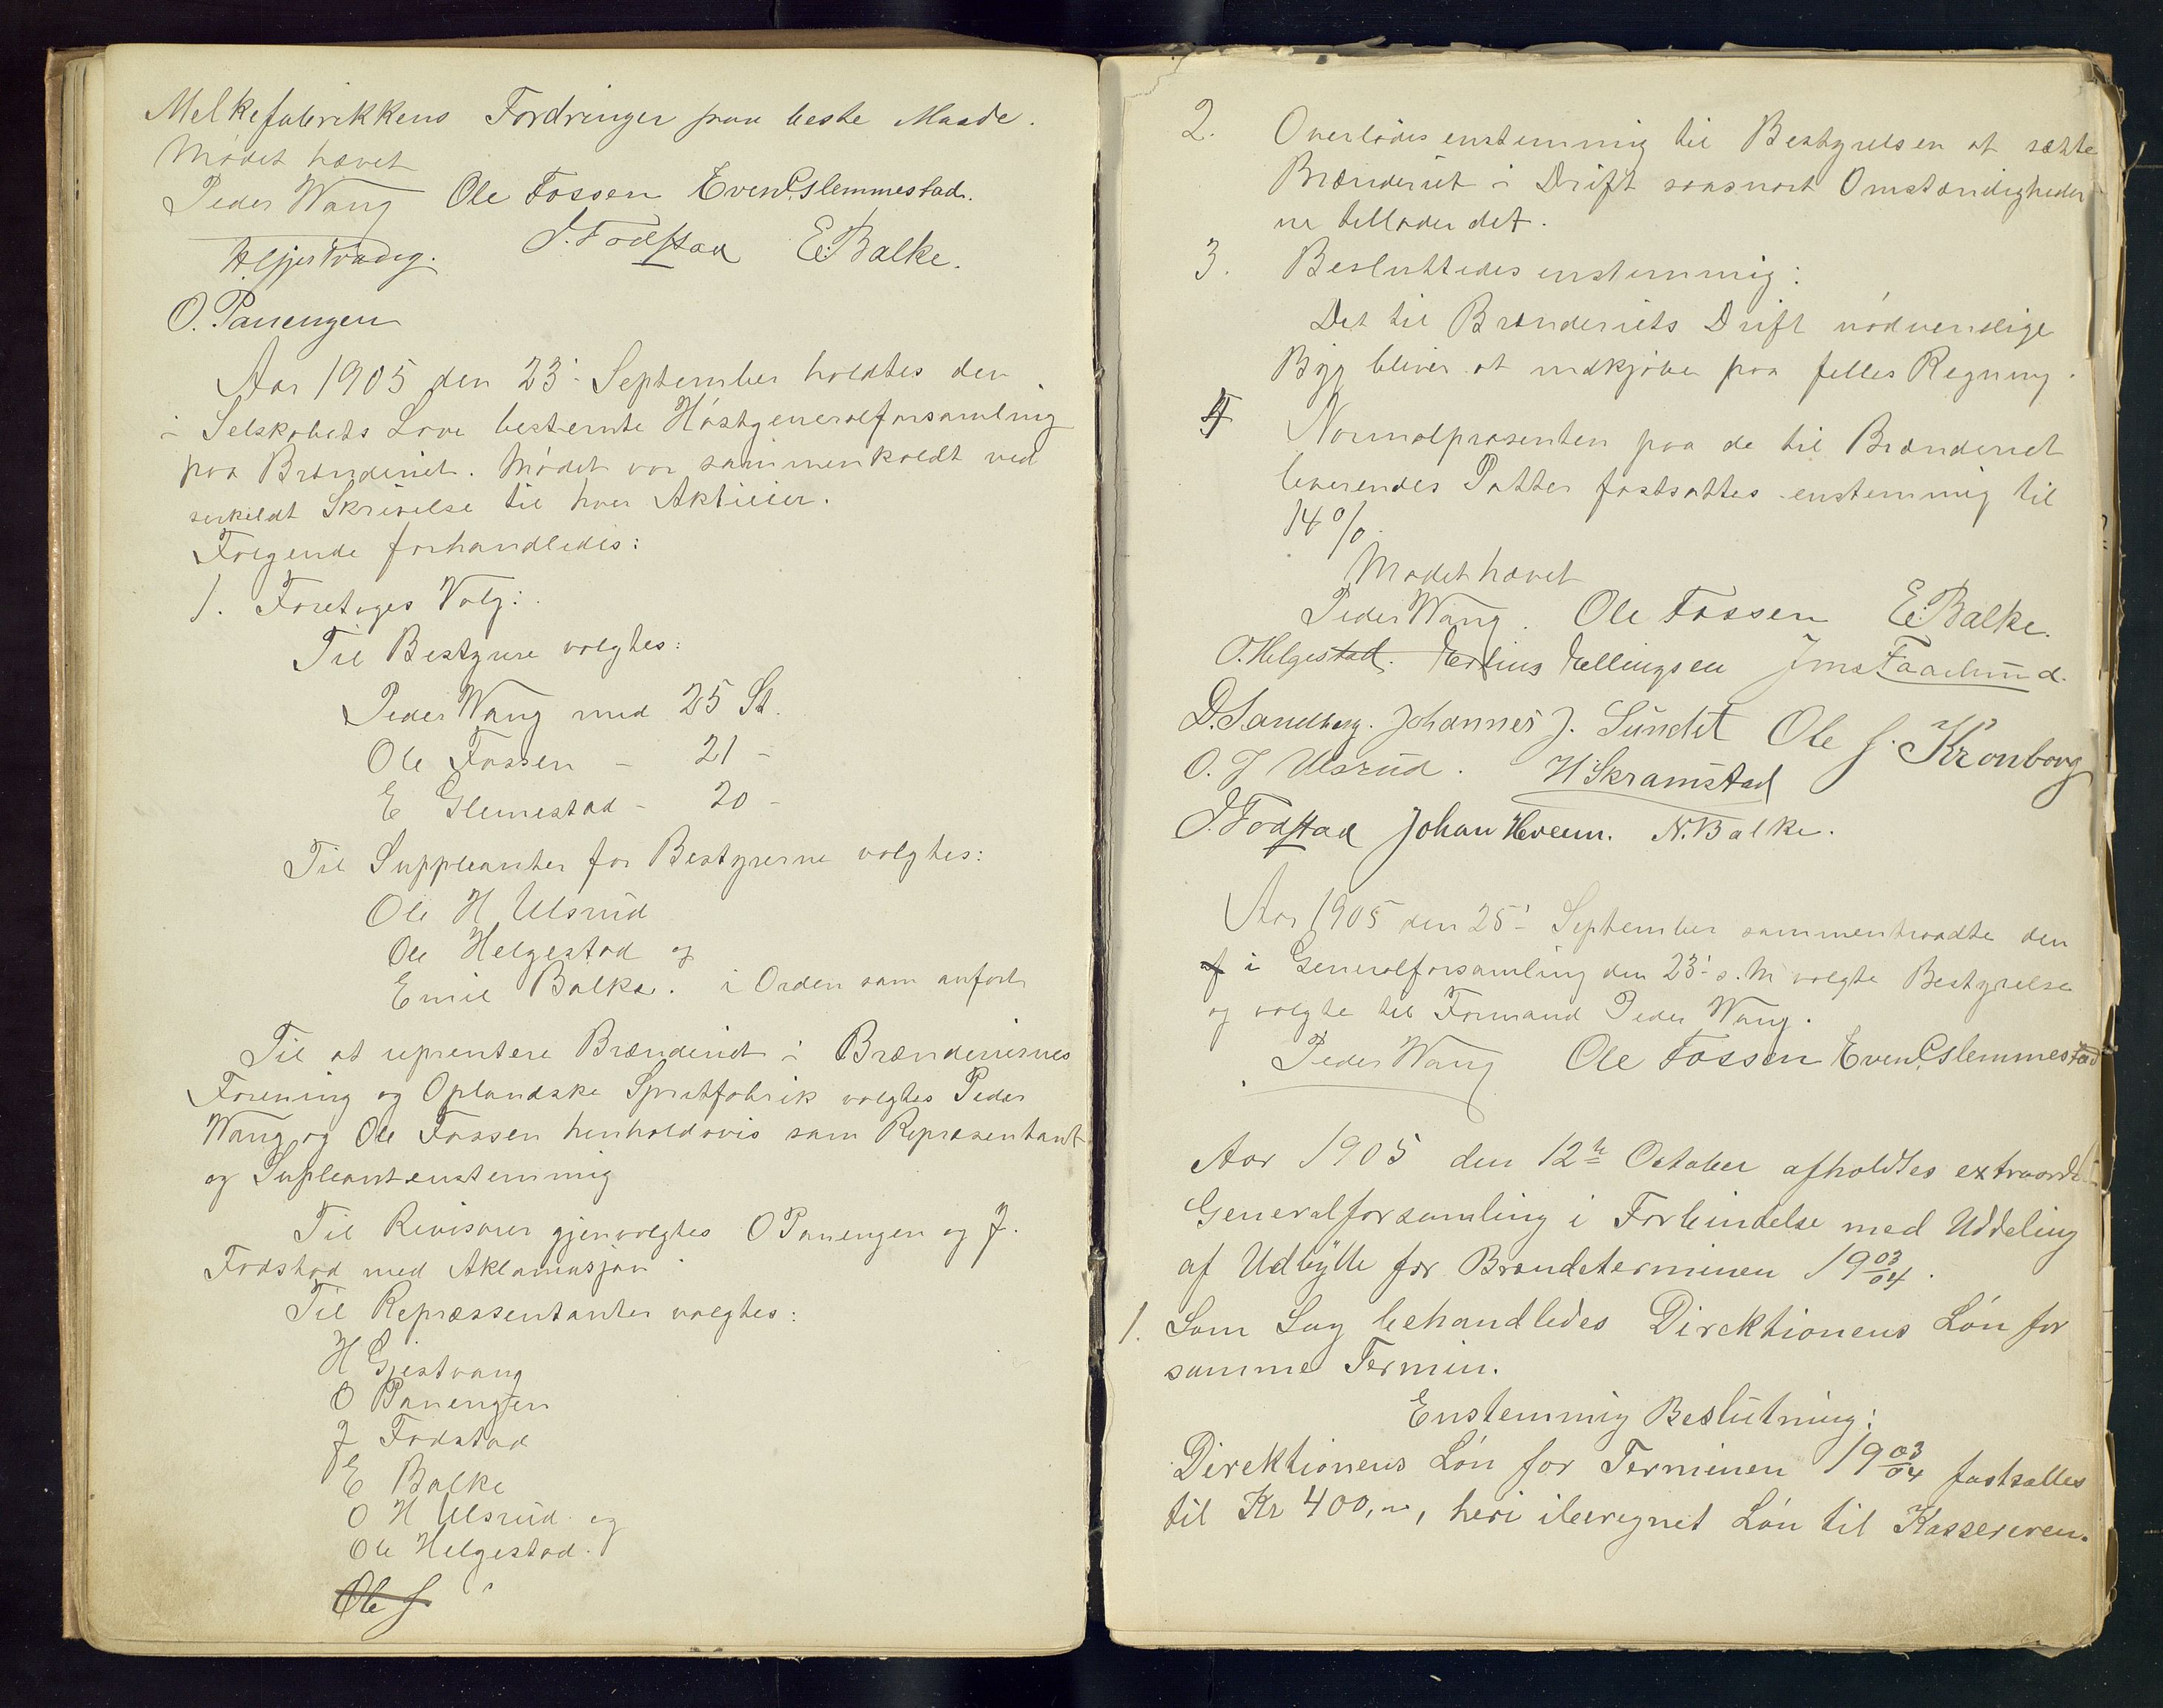 Melkefabrikkens Fordringer paa beste Maade.
Mødet hævet
Peder Wang Ole Fossen Even Glemmestad.
H. Gjestvang. J. Fodstad E. Balke.
O. Panengen
Aar 1905 den 23' September holdtes den
i Selskabets Love bestemte Høstgeneralforsamling
paa Brænderiet. Mødet var sammenkaldt ved
serkeldt Skrivelse til hver Aktieier.
Følgende forhandledes:
1. Foretoges Valg:
Til Bestyrere valgtes:
Peder Wang med 25 St.
Ole Fossen - 21 -
E Glemestad - 20 -
Til Suppleanter for Bestyrerne valgtes:
Ole H Ulsrud
Ole Helgestad og
Emil Balke. i Orden som anført
Til at reprentere Brænderiet i Brænderiernes
Forening og Oplandske Spritfabrik valgtes Peder
Wang og Ole Fossen henholdsvis som Repræsentant
og Supleant enstemmig
Til Revisorer gjenvalgtes O Panengen og J.
Fodstad med Aklamasjon
Til Repræssentanter valgtes:
H Gjestvang
O Panengen
J Fodstad
E Balke
O H Ulsrud og
Ole Helgestad.
Ole J
2. Overlodes enstemmig til Bestyrelsen at sætte
Brænderiet i Drift saasnart Omstændigheder
ne tillader det.
3. Besluttedes enstemmig:
Det til Brænderiets Drift nødvendige
Byg bliver at indkjøbe paa felles Regning.
4 Normalprosenten paa de til Brænderiet
leverendes Potter fastsattes enstemmig til
14%.
Mødet hævet
Peder Wang. Ole Fossen E. Balke.
O. Helgestad. Edvin Hellingsen Jens Faaelund.
D. Sandberg. Johannes J. Sundet Ole J. Kronborg
O. J Ulsrud. H. Skramstad
J. Fodstad Johan Hveem. N. Balke.
Aar 1905 den 25' September sammentraadte den
af i Generalforsamling den 23' s. M valgte Bestyrelse
og valgte til Formand Peder Wang.
Peder Wang Ole Fossen Even Glemmestad
Aar 1905 den 12te October afholdtes extraord
Generalforsamling i Forbindelse med Uddeling
af Udbytte for Brændeterminen 1903/04.
1. Som Sag behandledes Direktionens Løn for
samme Termin.
Enstemmig Beslutning:
Direktionens Løn for Terminen 1903/04 fastsattes
til Kr 400,00, heri iberegnet Løn til Kassereren.